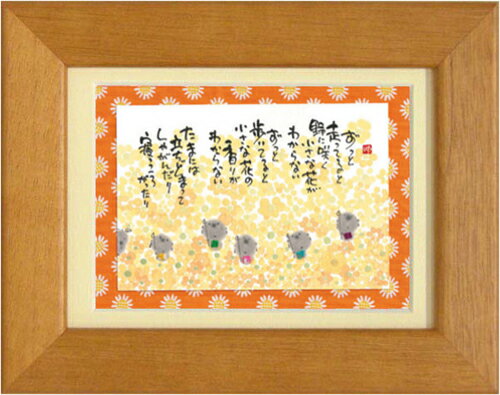 ずっと
走ってるのと
野に咲く
小さな花が
わからない
ずっと
歩いてると
小さな花の
香りが
わからない
たまには
立ちどまって
しゃがんだり
寝ころ
がったり